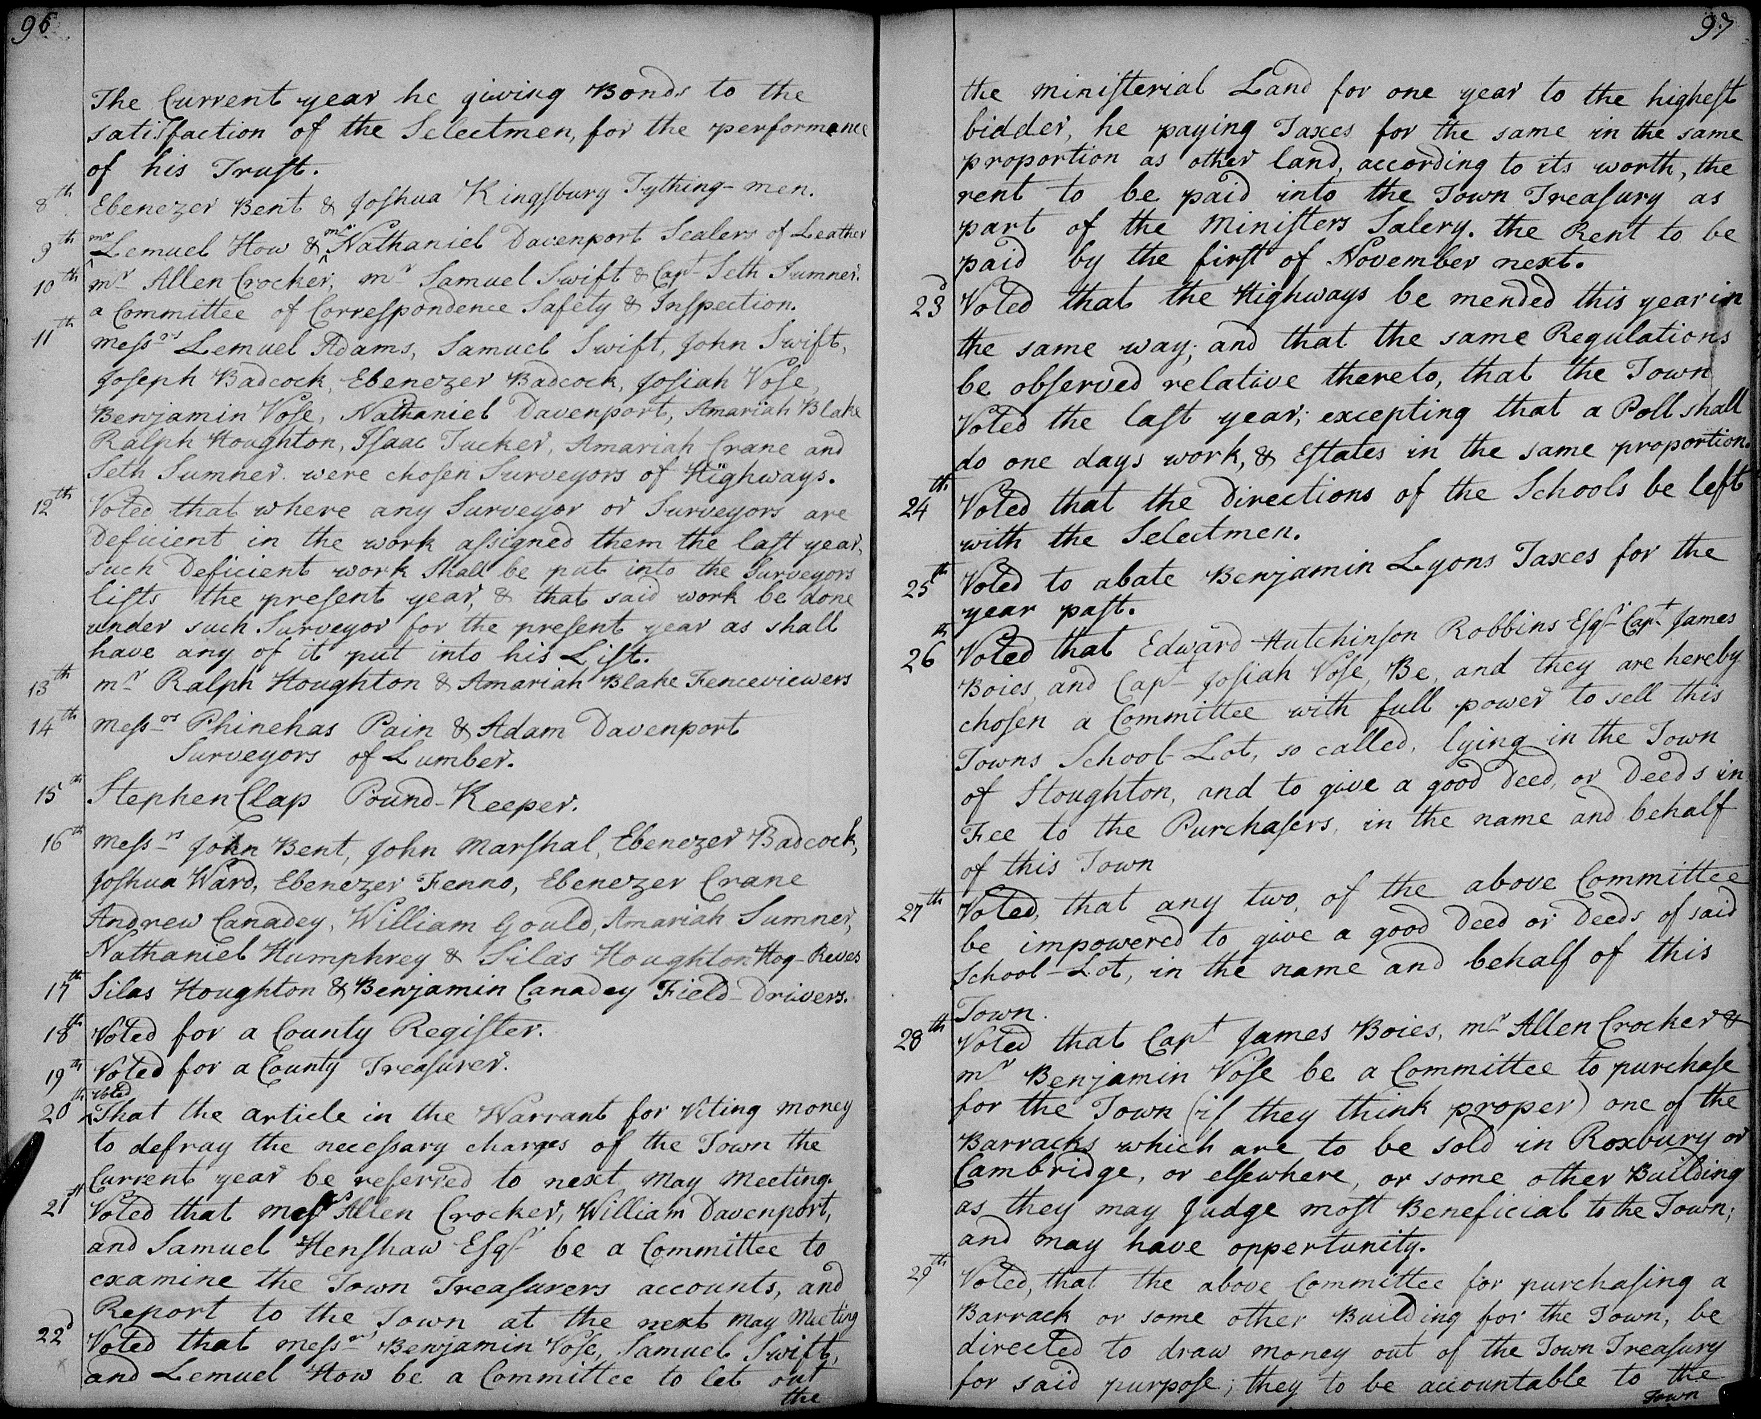 96
The Current year he giving Bonds to the
satisfaction of the Selectmen, for the performance
of his Trust.
8th Ebenezer Bent & Joshua Kingsbury Tything-men.
9th mr Lemuel How & mr Nathaniel Davenport Sealers of Leather
10th mr Allen Crocker, mr Samuel Swift & Capt Seth Sumner.
a Committee of Correspondence Safety & Inspection.
11th messrs Lemuel Adams, Samuel Swift, John Swift,
Joseph Badcock, Ebenezer Badcock, Josiah Vose,
Benjamin Vose, Nathaniel Davenport, Amariah Blake
Ralph Houghton, Isaac Tucker, Amariah Crane and
Seth Sumner were chosen Surveyors of Highways.
12th Voted that where any Surveyor or Surveyors are
Deficient in the work assigned them the last year,
such Deficient work shall be put into the Surveyors
lists the present year, & that said work be done
under such Surveyor for the present year as shall
have any of it put into his List.
13th mr Ralph Houghton & Amariah Blake Fenceviewers
14th messrs Phinehas Pain & Adam Davenport
Surveyors of Lumber.
15th Stephen Clap Pound-Keeper.
16th messrs John Bent, John Marshal, Ebenezer Badcock,
Joshua Ward, Ebenezer Fenno, Ebenezer Crane
Andrew Canadey, William Gould, Amariah Sumner,
Nathaniel Humphrey & Silas Houghton Hog-Reves
17th Silas Houghton & Benjamin Canadey Field-Drivers.
18th Voted for a County Register.
19th Voted for a County Treasurer.
20th Voted That the article in the Warrant for Voting money
to defray the necessary charges of the Town the
Current year be referred to next May Meeting.
21st Voted that messrs Allen Crocker, William Davenport,
and Samuel Henshaw Esqr be a Committee to
examine the Town Treasurers accounts, and
Report to the Town at the next May Meeting
22d Voted that messrs Benjamin Vose, Samuel Swift,
and Lemuel How be a Committee to let out
the
97
the ministerial Land for one year to the highest
bidder, he paying Taxes for the same in the same
proportion as other land, according to its worth, the
rent to be paid into the Town Treasury as
part of the Ministers Salery. the Rent to be
paid by the first of November next.
23d Voted that the Highways be mended this year in
the same way; and that the same Regulations
be observed relative thereto, that the Town
Voted the last year; excepting that a Poll shall
do one days work, & Estates in the same proportion.
24th Voted that the Directions of the Schools be left
with the Selectmen.
25th Voted to abate Benjamin Lyons Taxes for the
year past.
26th Voted that Edward Hutchinson Robbins Esqr Capt James
Boies, and Capt Josiah Vose, Be, and they are hereby
chosen a Committee with full power to sell this
Towns School-Lot, so called, lying in the Town
of Stoughton, and to give a good deed, or Deeds in
Fee to the Purchasers, in the name and behalf
of this Town
27th Voted, that any two, of the above Committee
be impowered to give a good Deed or Deeds of said
School-Lot, in the name and behalf of this
Town.
28th Voted that Capt James Boies, mr Allen Crocker &
mr Benjamin Vose be a Committee to purchase
for the Town (if they think proper) one of the
Barracks which are to be sold in Roxbury or
Cambridge, or elsewhere, or some other Building
as they may Judge most Beneficial to the Town;
and may have oppertunity.
29th Voted, that the above Committee for purchasing a
Barrack or some other Building for the Town, be
directed to draw money out of the Town Treasury
for said purpose; they to be accountable to the
Town